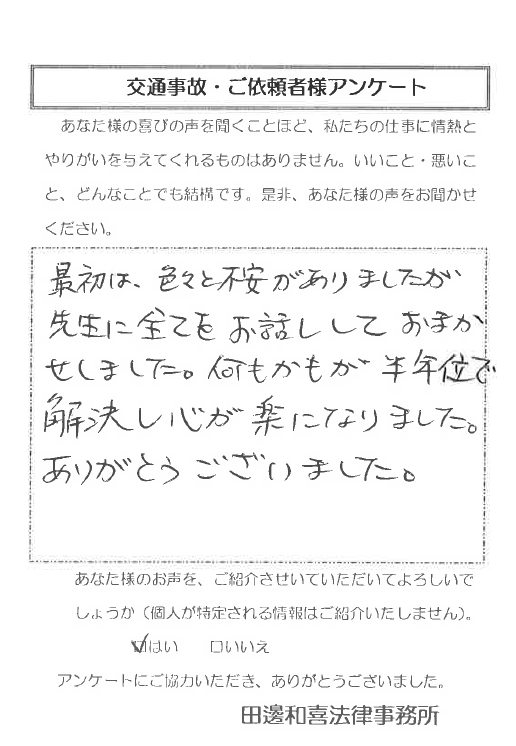 交通事故・ご依頼者様アンケート
あなた様の喜びの声を聞くことほど、私たちの仕事に情熱と
やりがいを与えてくれるものはありません。いいこと・悪いこ
と、どんなことでも結構です。是非、あなた様の声をお聞かせ
ください。
最初は、色々と不安がありましたが
先生に全てをお話しして おまか
せしました。何もかもが 半年位で
解決し心が楽になりました。
ありがとうございました。
あなた様のお声を、ご紹介させていただいてよろしいで
しょうか（個人が特定される情報はご紹介いたしません）。
☑はい □いいえ
アンケートにご協力いただき、ありがとうございました。
田邊和喜法律事務所